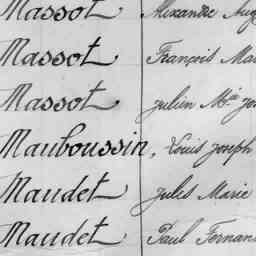 Massot Alexandre Aug
Massot François Mar
Massot Julien Mie Jo
Mauboussin, Louis Joseph
Maudet Jules Marie
Maudet Paul Fernan